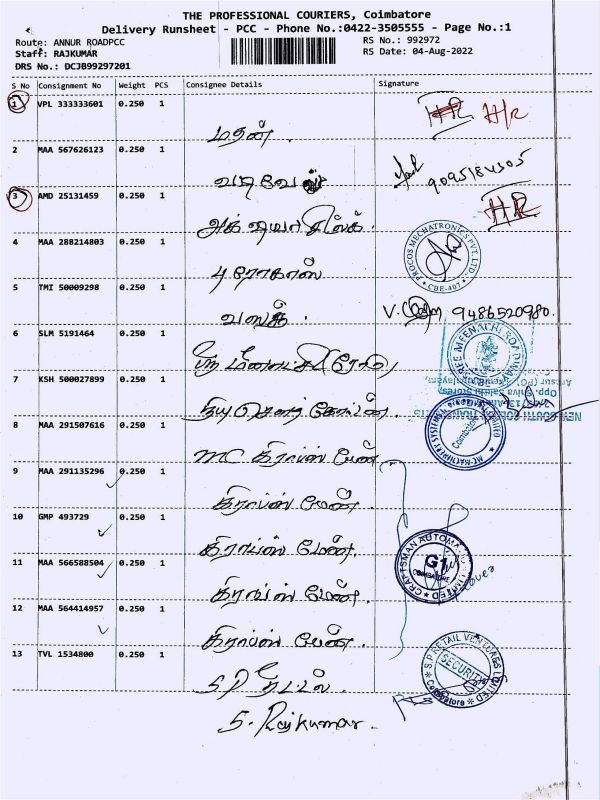 THE PROFESSIONAL COURIERS, Coimbatore
Delivery Runsheet - PCC - Phone No.:0422-3505555 - Page No.:1
Route: ANNUR ROADPCC RS No.: 992972
Staff: RAJKUMAR RS Date: 04-Aug-2022
DRS No.: DCJB99297201
S No Consignment No Weight PCS Consignee Details Signature
1 VPL 333333601 0.250 1 H/R H/R
மதன்
2 MAA 567626123 0.250 1 9095184305
வடிவேல்
3 AMD 25131459 0.250 1 H/R
4 MAA 288214803 0.250 1 PROCOS MECHATRONICS PVT. LTD. CBE-407
புரோகாஸ்
5 TMI 50009298 0.250 1 V. 9486520980
வஸந்
6 SLM 5191464 0.250 1 SREE MEENACHI ROADWAYS
ஸ்ரீ மீனாட்சி
7 KSH 500027899 0.250 1 Opp. Shiva Sakthi Stores,
நியூ சவுத்
8 MAA 291507616 0.250 1 MC MACHINERY SYSTEMS Coimbatore
MC கிராப்ஸ் மேன்
9 MAA 291135296 0.250 1
கிராப்ஸ் மேன்.
10 GMP 493729 0.250 1
கிராப்ஸ் மேன்.
11 MAA 566588504 0.250 1 CRAFTSMAN AUTOMATION LIMITED G1 COIMBATORE
கிராப்ஸ் மேன்.
12 MAA 564414957 0.250 1
கிராப்ஸ் மேன்.
13 TVL 1534800 0.250 1 S.P. RETAIL VENTURES LIMITED SECURITY Coimbatore
S.P ரீட்டல்.
S. Rajkumar.